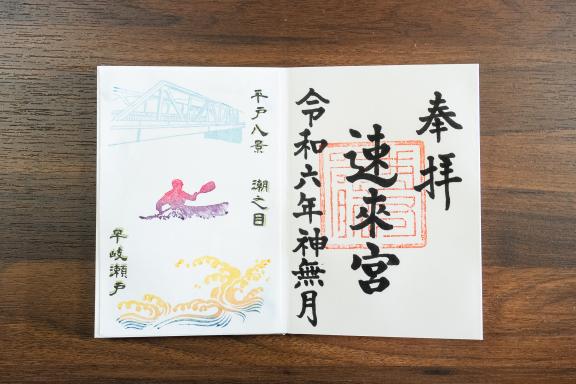 奉拝
速來宮
令和六年神無月
平戸八景 潮之目
早岐瀬戸